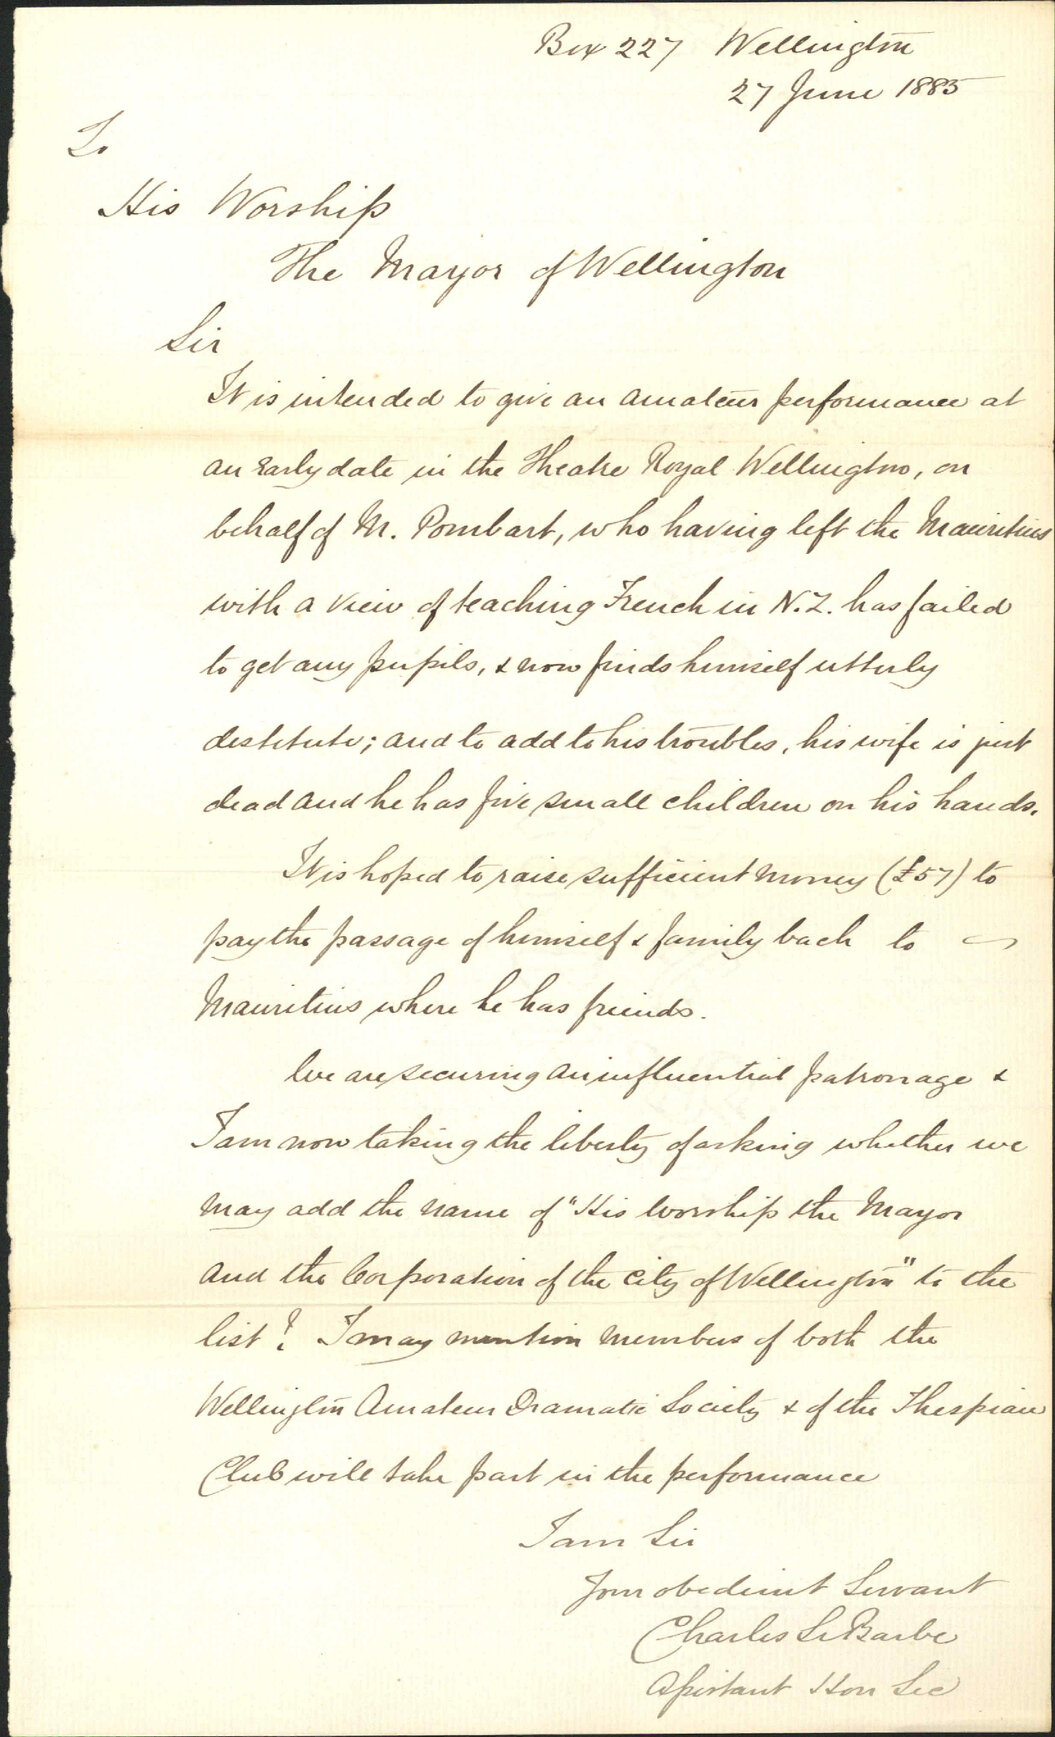 Box 227 Wellington
27 June 1885
To
His Worship
The Mayor of Wellington
Sir
It is intended to give an amateur performance at
an early date in the Theatre Royal Wellington, on
behalf of M. Pombart, who having left the Mauritius
with a view of teaching French in N.Z. has failed
to get any pupils, & now finds himself utterly
destitute; and to add to his troubles, his wife is just
dead and he has five small children on his hands.
It is hoped to raise sufficient money (£57) to
pay the passage of himself & family back to
Mauritius where he has friends.
We are securing an influential patronage &
I am now taking the liberty of asking whether we
may add the name of "His Worship the Mayor
and the Corporation of the City of Wellington" to the
list? I may mention members of both the
Wellington Amateur Dramatic Society & of the Thespian
Club will take part in the performance
I am Sir
Your obedient Servant
Charles Le Barbe
Assistant Hon Sec